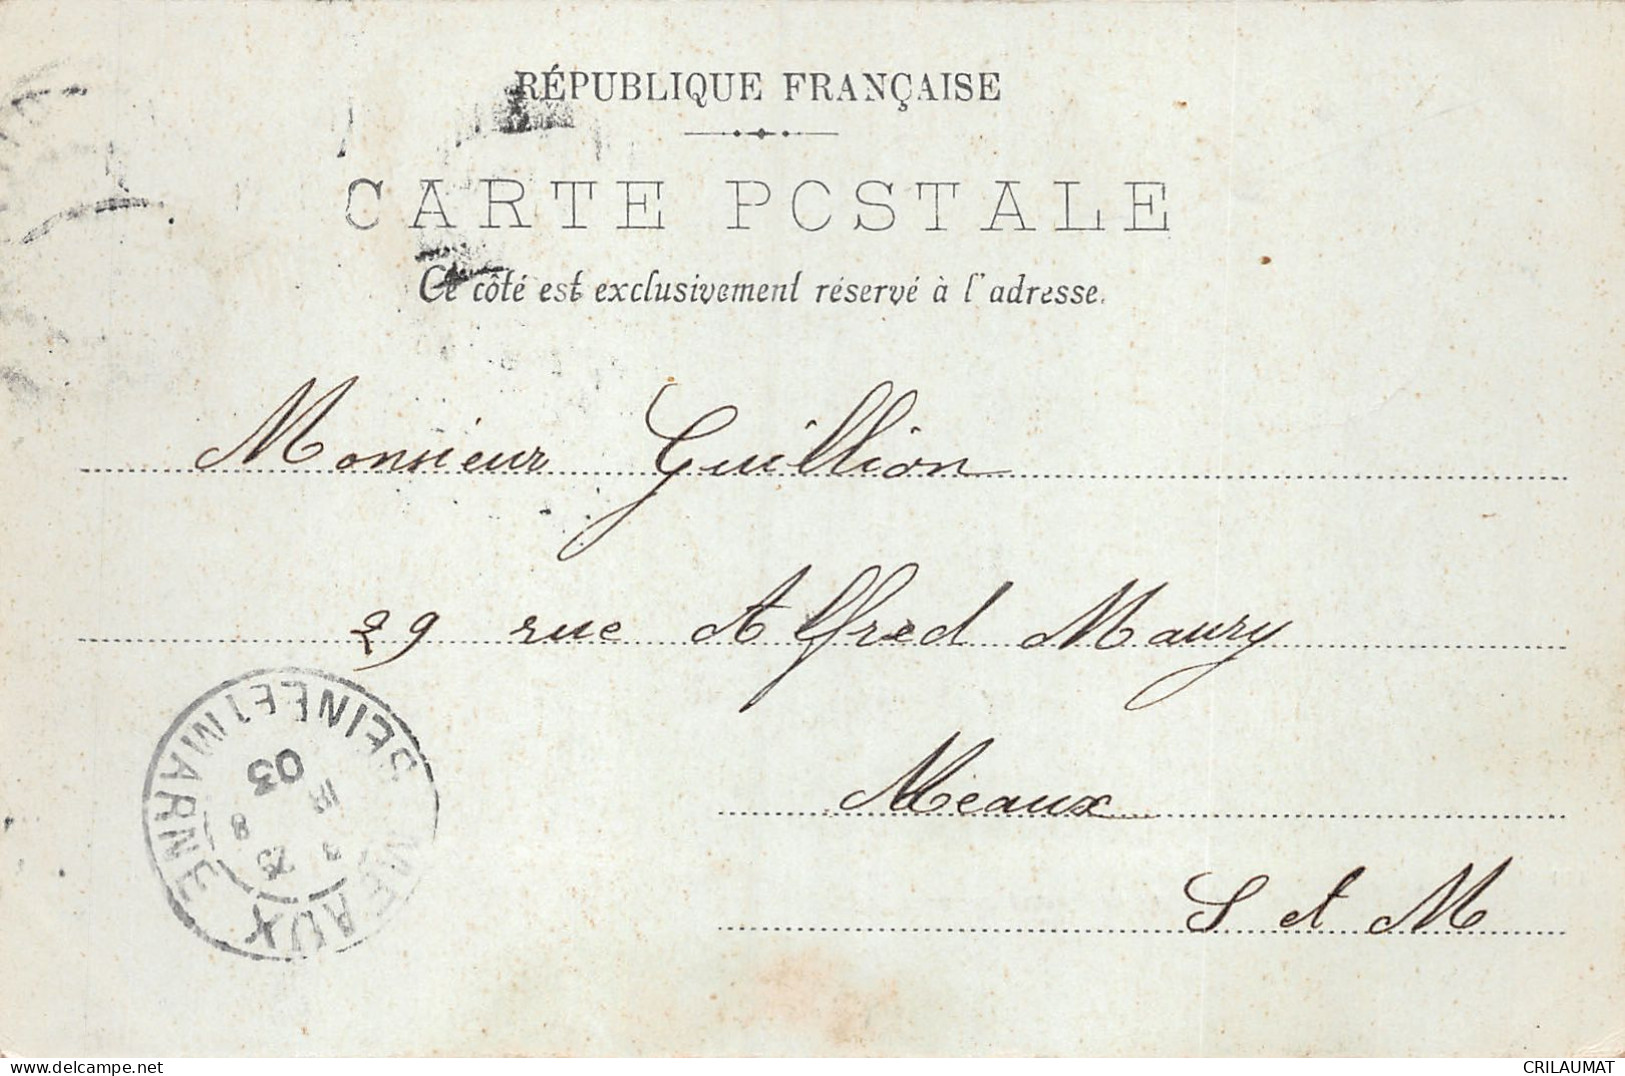 RÉPUBLIQUE FRANÇAISE
CARTE POSTALE
Ce côté est exclusivement réservé à l'adresse.
Monsieur Guillion
29 rue Alfred Maury
Meaux
S et M
MEAUX
SEINE ET MARNE
25
8
03
CRILAUMAT